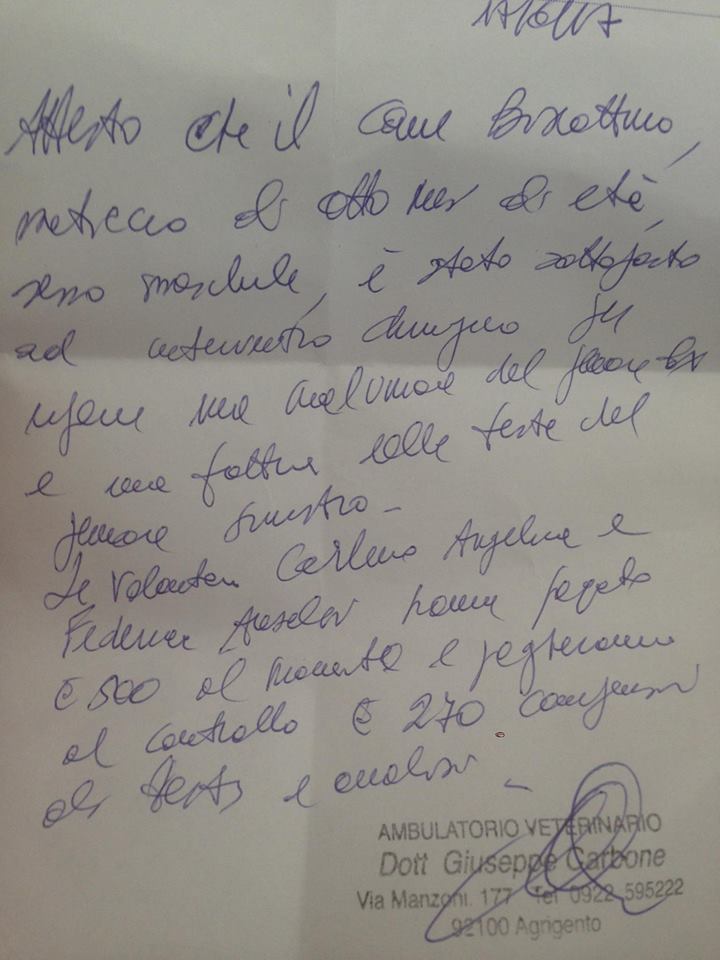 Attesto che il cane
meticcio di otto mesi di età,
sesso maschile, è stato sottoposto
ad intervento chirurgico per
una del femore dx
e una frattura della testa del
femore sinistro -
Le Volontarie Carlino Angelina e
Federica hanno pagato
€ 500 al momento e pagheranno
al controllo € 270 comprensivi
di tests e analisi -
AMBULATORIO VETERINARIO
Dott Giuseppe Carbone
Via Manzoni. 177 Tel 0922 595222
92100 Agrigento